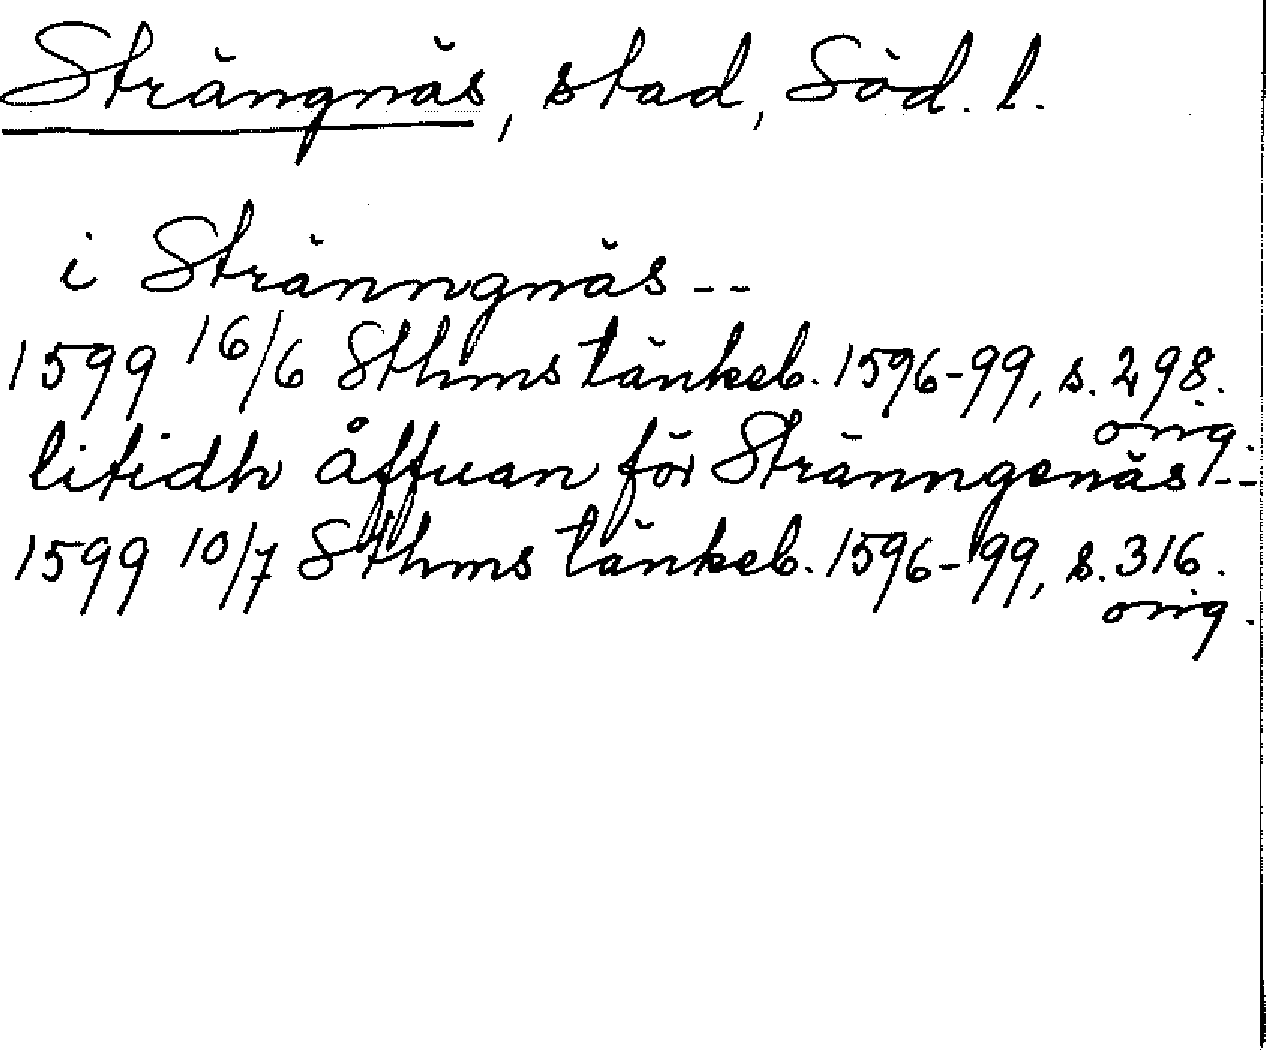 Strängnäs, stad, Söd. l.
i Stränngnäs --
1599 16/6 Sthms tänkeb. 1596-99, s. 298.
orig.
litidh åffuan för Stränngenäs --
1599 10/7 Sthms tänkeb. 1596-99, s. 316.
orig.